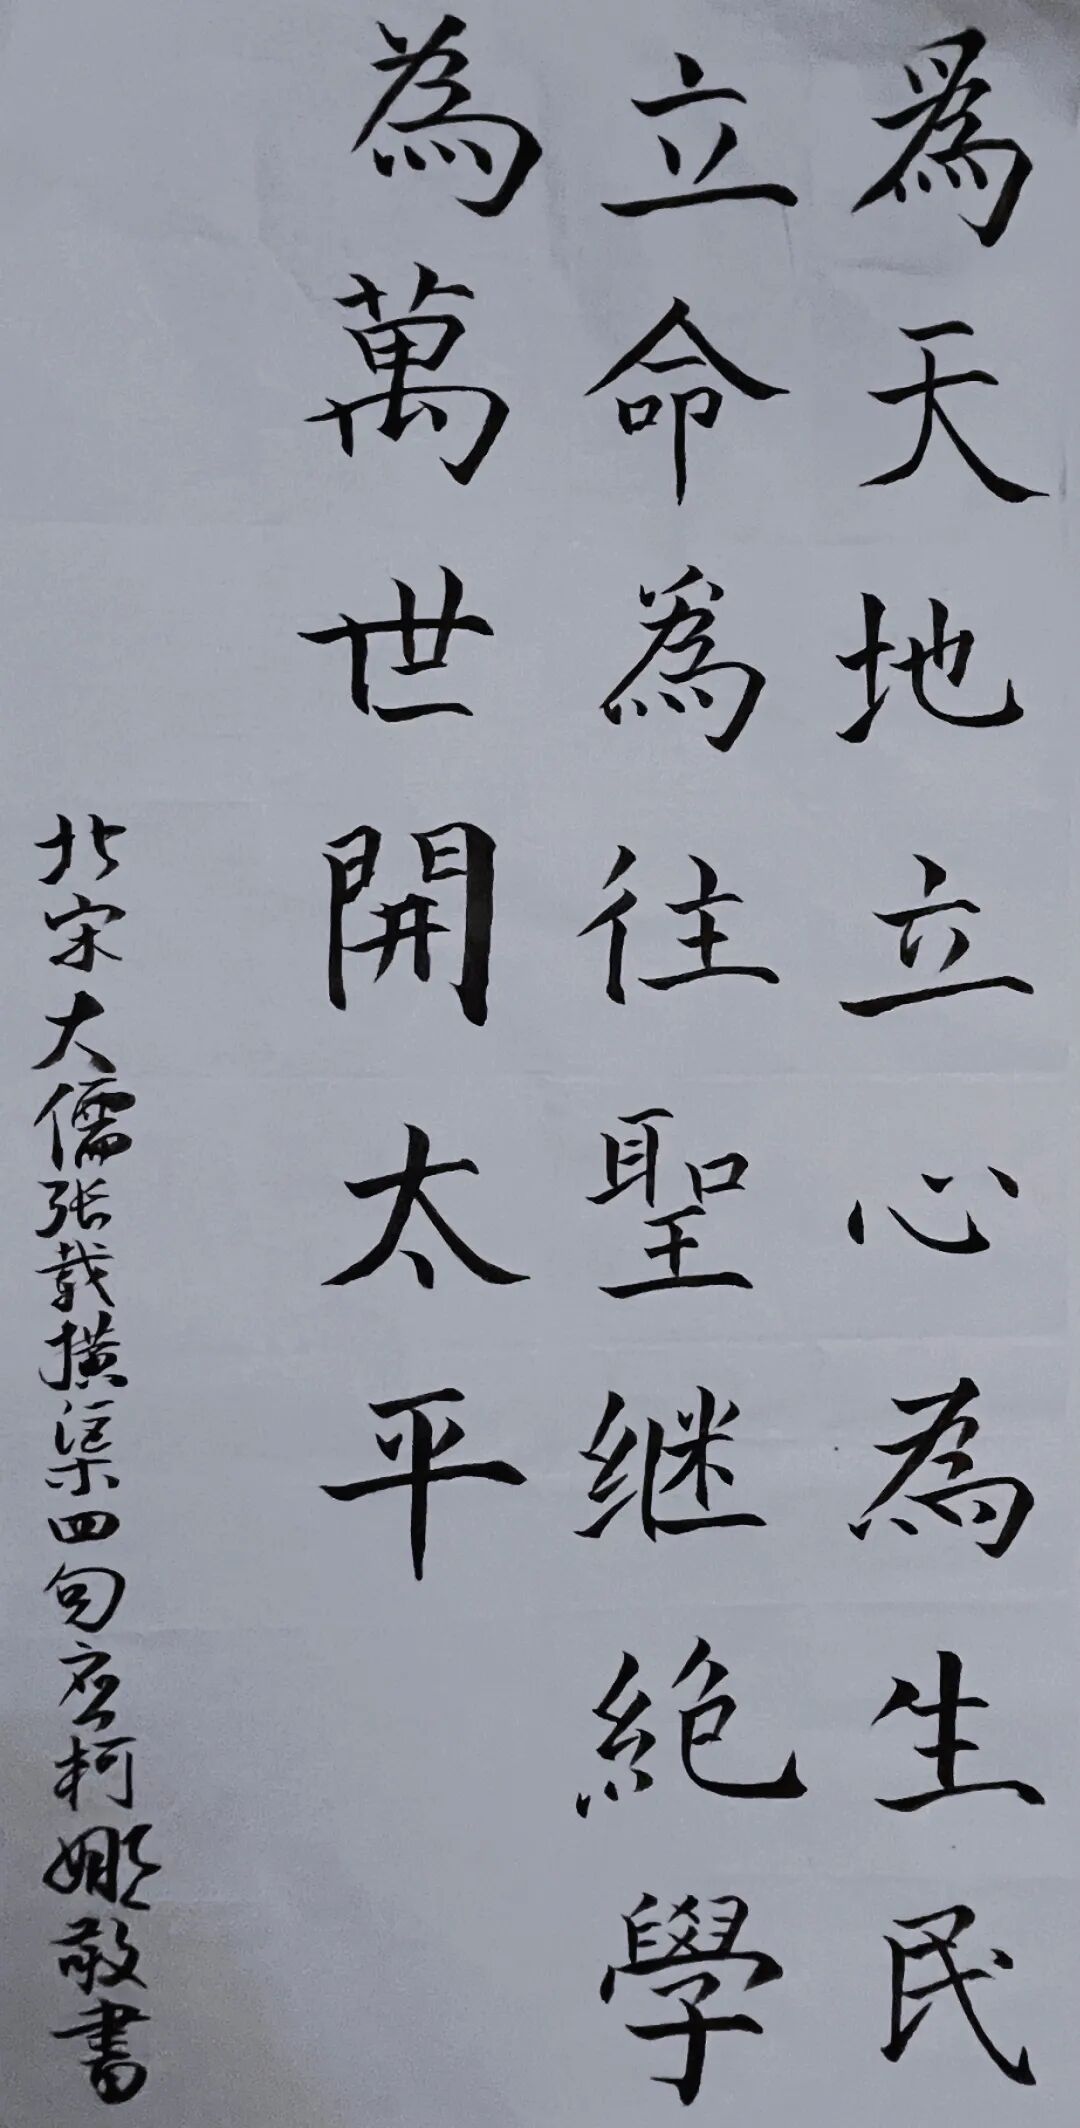 爲天地立心為生民
立命爲往聖継絶學
為萬世開太平
北宋大儒张载横渠四句应柯娜敬書